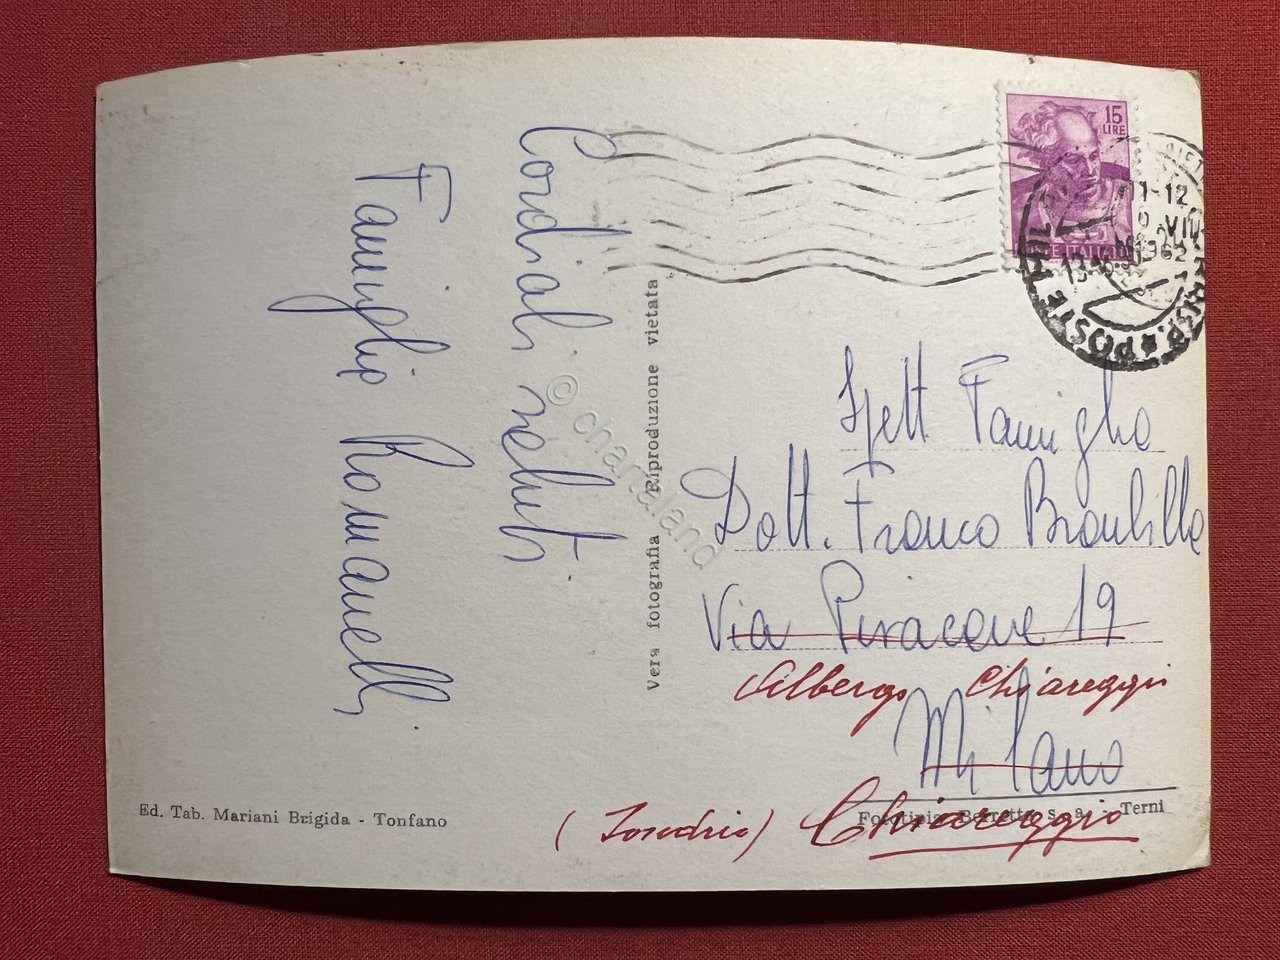 Cordiali saluti
Famiglia Romanelli
Vera fotografia Riproduzione vietata
Ed. Tab. Mariani Brigida - Tonfano
15
LIRE
11-12
VIII
1962
POSTE
Spett Famiglia
Dott. Franco Brambilla
Via Piracene 19
Albergo Chiareggio
Milano
Fototipia Berretta s. a. - Terni
(Sondrio) Chiareggio
© chartaland